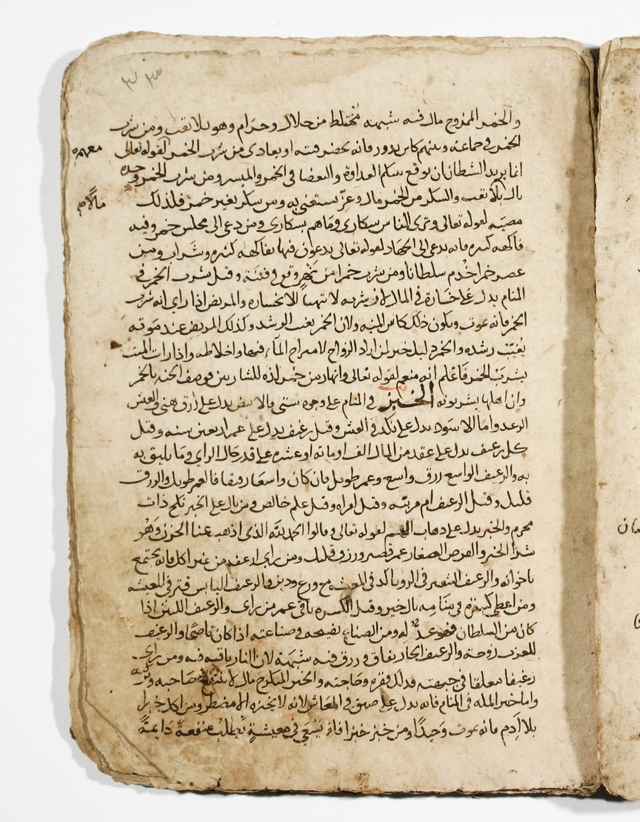 والخمر الممزوج مال فيه شبهة مختلط من حلال وحرام وهو بلا تعب ومن شرب
الخمر في جماعة وبينهم كاس يدور فانه يحضر فتنة او يعادي من شرب الخمر لقوله تعالى
انما يريد الشيطان ان يوقع بينكم العداوة والبغضا في الخمر والميسر ومن شرب الخمر وحده
نال بلا تعب والسكر من الخمر مال وعز يستغني به ومن سكر بغير خمر فلذلك
مصيبه لقوله تعالى وترى الناس سكارى وما هم بسكارى ومن دعي الى مجلس خمر وفيه
فاكهه كثيره فانه يدعى الى الجهاد لقوله تعالى يدعون فيها بفاكهه كثيره وشراب ومن
عصر خمرا خدم سلطانا ومن شرب خمرا من نهر وقع في فتنة وقيل شرب الخمر في
المنام يدل على خسارة في المال لان شربه لا تنهيها الا خساره والمريض اذا راى انه شرب
الخمر فانه يموت ويكون ذلك كاس المنيه ولان الخمر يغيب الرشد وكذلك المريض عند موته
يغيب رشده والخمر دليل خير لمن اراد الزواج لامتزاج الماء فيها واختلاطه واذا رات الميت
يشرب الخمر فاعلم انه منعم لقوله تعالى وانهار من خمر لذه للشاربين فوصف الجنه بالخمر
وان اهلها يشربونه الخبز في المنام على وجوه شتى والابيض يدل على رزق هني والعيش
الرغد واما الاسود يدل على نكد في العيش وقيل رغيف يدل على عمر اربعين سنه وقيل
كل رغيف يدل على عقد من المال الف او مائة او عشره على قدر حال الراي وما يليق به
به والرغيف الواسع رزق واسع وعمر طويل فان كان واسعا رقيقا فالعمر طويل والرزق
قليل وقيل الرغيف ام مربيه وقيل امراه وقيل علم خالص ومن بال على الخبز نكح ذات
محرم والخبز يدل على ذهاب الهم لقوله تعالى وقالوا الحمد لله الذي اذهب عنا الحزن وهو
شرا الخبز والقرص الصغار عمر قصير ورزق قليل ومن راى ارغفه من غير اكل فانه يجتمع
باخوانه والرغيف الشعير في الرويا كد في المعيشه مع ورع ودين والرغيف اليابس قتر في المعيشه
ومن اعطي كسره في منامه بالخبز وقيل الكسره باقي عمر من راى والرغيف اللين اذا
كان من السلطان فهو عدله ومن الصناع نصيحه في صناعته اذا كان ناضجا والرغيف
للعزب زوجه والرغيف الحار نفاق في رزق فيه شبهة لان النار باقيه فيه ومن راى
رغيفا معلقا في جبهته فذلك فقره وحاجته والخبز المتكرج مال لا ينتفع صاحبه
واما خبز المله في المنام فانه يدل على ضيق في المعاش لانه لا يخبزه الا مضطر ومن اكل خبز
بلا ادم فانه يموت وحيدا ومن خبز خبزا فانه يسعى في معيشة يطلب منفعة دايمة